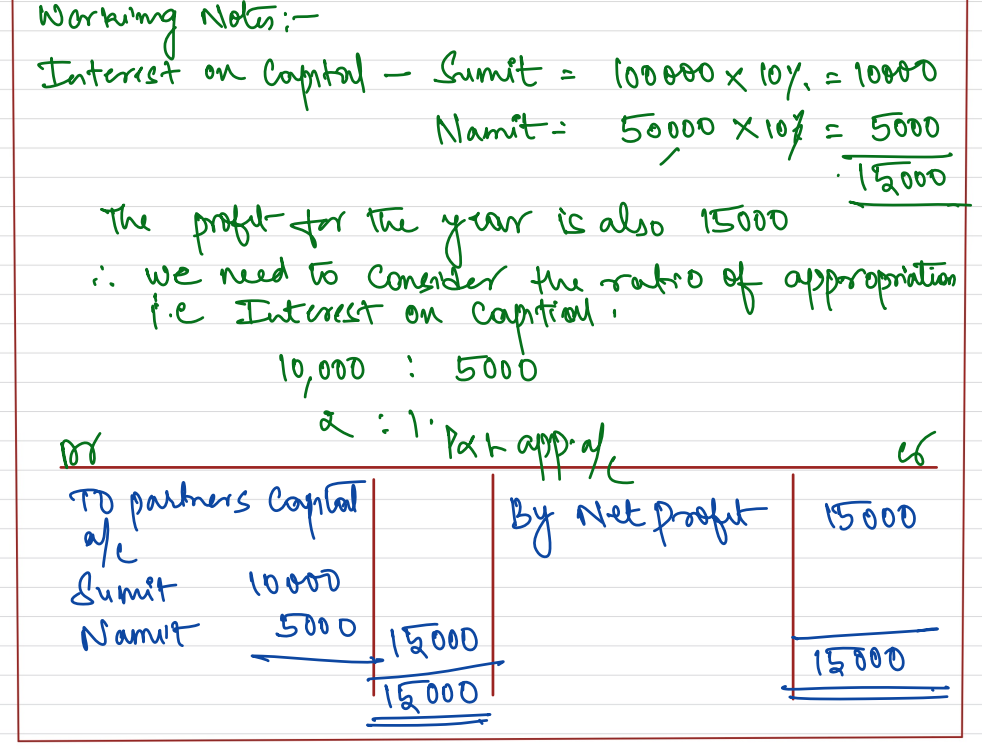 Working Notes:-
Interest on Capital - Sumit = 100000 × 10% = 10000
Namit = 50,000 × 10% = 5000
15000
The profit for the year is also 15000
∴ we need to consider the ratio of appropriation
i.e Interest on capital.
10,000 : 5000
2 : 1.
Dr P&L app. a/c Cr
To partners Capital By Net profit 15000
a/c
Sumit 10000
Namit 5000 15000
15000 15000